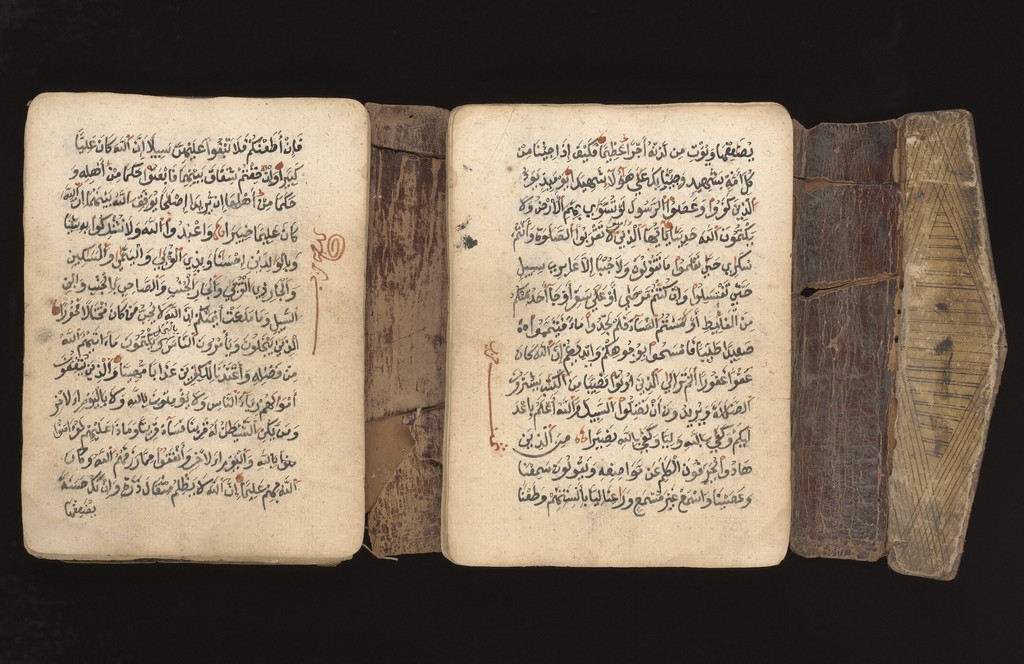 فَإِنْ أَطَعْنَكُمْ فَلَا تَبْغُوا عَلَيْهِنَّ سَبِيلًا إِنَّ اللَّهَ كَانَ عَلِيًّا
كَبِيرًا وَإِنْ خِفْتُمْ شِقَاقَ بَيْنِهِمَا فَابْعَثُوا حَكَمًا مِنْ أَهْلِهِ وَ
حَكَمًا مِنْ أَهْلِهَا إِنْ يُرِيدَا إِصْلَحًا يُوَفِّقِ اللَّهُ بَيْنَهُمَا إِنَّ اللَّهَ
كَانَ عَلِيمًا خَبِيرًا وَاعْبُدُوا اللَّهَ وَلَا تُشْرِكُوا بِهِ شَيْئًا
وَبِالْوَلِدَيْنِ إِحْسَنًا وَبِذِي الْقُرْبَى وَالْيَتَمَى وَالْمَسَكِينِ
وَالْجَارِ ذِي الْقُرْبَى وَالْجَارِ الْجُنُبِ وَالصَّاحِبِ بِالْجَنْبِ وَابْنِ
السَّبِيلِ وَمَا مَلَكَتْ أَيْمَنُكُمْ إِنَّ اللَّهَ لَا يُحِبُّ مَنْ كَانَ مُخْتَالًا فَخُورًا
الَّذِينَ يَبْخَلُونَ وَيَأْمُرُونَ النَّاسَ بِالْبُخْلِ وَيَكْتُمُونَ مَا ءَاتَيهُمُ اللَّهُ
مِنْ فَضْلِهِ وَأَعْتَدْنَا لِلْكَفِرِينَ عَذَابًا مُهِينًا وَالَّذِينَ يُنْفِقُونَ
أَمْوَلَهُمْ رِئَاءَ النَّاسِ وَلَا يُؤْمِنُونَ بِاللَّهِ وَلَا بِالْيَوْمِ الْاخِرِ
وَمَنْ يَكُنِ الشَّيْطَنُ لَهُ قَرِينًا فَسَاءَ قَرِينًا وَمَاذَا عَلَيْهِمْ لَوْ ءَامَنُوا
بِاللَّهِ وَالْيَوْمِ الْاخِرِ وَأَنْفَقُوا مِمَّا رَزَقَهُمُ اللَّهُ وَكَانَ
اللَّهُ بِهِمْ عَلِيمًا إِنَّ اللَّهَ لَا يَظْلِمُ مِثْقَالَ ذَرَّةٍ وَإِنْ تَكُ حَسَنَةً
يُضَعِفْهَا
يُضَعِفْهَا وَيُؤْتِ مِنْ لَدُنْهُ أَجْرًا عَظِيمًا فَكَيْفَ إِذَا جِئْنَا مِنْ
كُلِّ أُمَّةٍ بِشَهِيدٍ وَجِئْنَا بِكَ عَلَى هَؤُلَاءِ شَهِيدًا يَوْمَئِذٍ يَوَدُّ
الَّذِينَ كَفَرُوا وَعَصَوُا الرَّسُولَ لَوْ تُسَوَّى بِهِمُ الْأَرْضُ وَلَا
يَكْتُمُونَ اللَّهَ حَدِيثًا يَاأَيُّهَا الَّذِينَ لَا تَقْرَبُوا الصَّلَوةَ وَأَنْتُمْ
سُكَرَى حَتَّى تَعْلَمُوا مَا تَقُولُونَ وَلَا جُنُبًا إِلَّا عَابِرِي سَبِيلٍ
حَتَّى تَغْتَسِلُوا وَإِنْ كُنْتُمْ مَرْضَى أَوْ عَلَى سَفَرٍ أَوْ جَاءَ أَحَدٌ مِنْكُمْ
مِنَ الْغَائِطِ أَوْ لَمَسْتُمُ النِّسَاءَ فَلَمْ تَجِدُوا مَاءً فَتَيَمَّمُوا
صَعِيدًا طَيِّبًا فَامْسَحُوا بِوُجُوهِكُمْ وَأَيْدِيكُمْ إِنَّ اللَّهَ كَانَ
عَفُوًّا غَفُورًا أَلَمْ تَرَ إِلَى الَّذِينَ أُوتُوا نَصِيبًا مِنَ الْكِتَبِ يَشْتَرُونَ
الضَّلَلَةَ وَيُرِيدُونَ أَنْ تَضِلُّوا السَّبِيلَ وَاللَّهُ أَعْلَمُ بِأَعْدَ
ائِكُمْ وَكَفَى بِاللَّهِ وَلِيًّا وَكَفَى بِاللَّهِ نَصِيرًا مِنَ الَّذِينَ
هَادُوا يُحَرِّفُونَ الْكَلِمَ عَنْ مَوَاضِعِهِ وَيَقُولُونَ سَمِعْنَا
وَعَصَيْنَا وَاسْمَعْ غَيْرَ مُسْمَعٍ وَرَاعِنَا لَيًّا بِأَلْسِنَتِهِمْ وَطَعْنًا